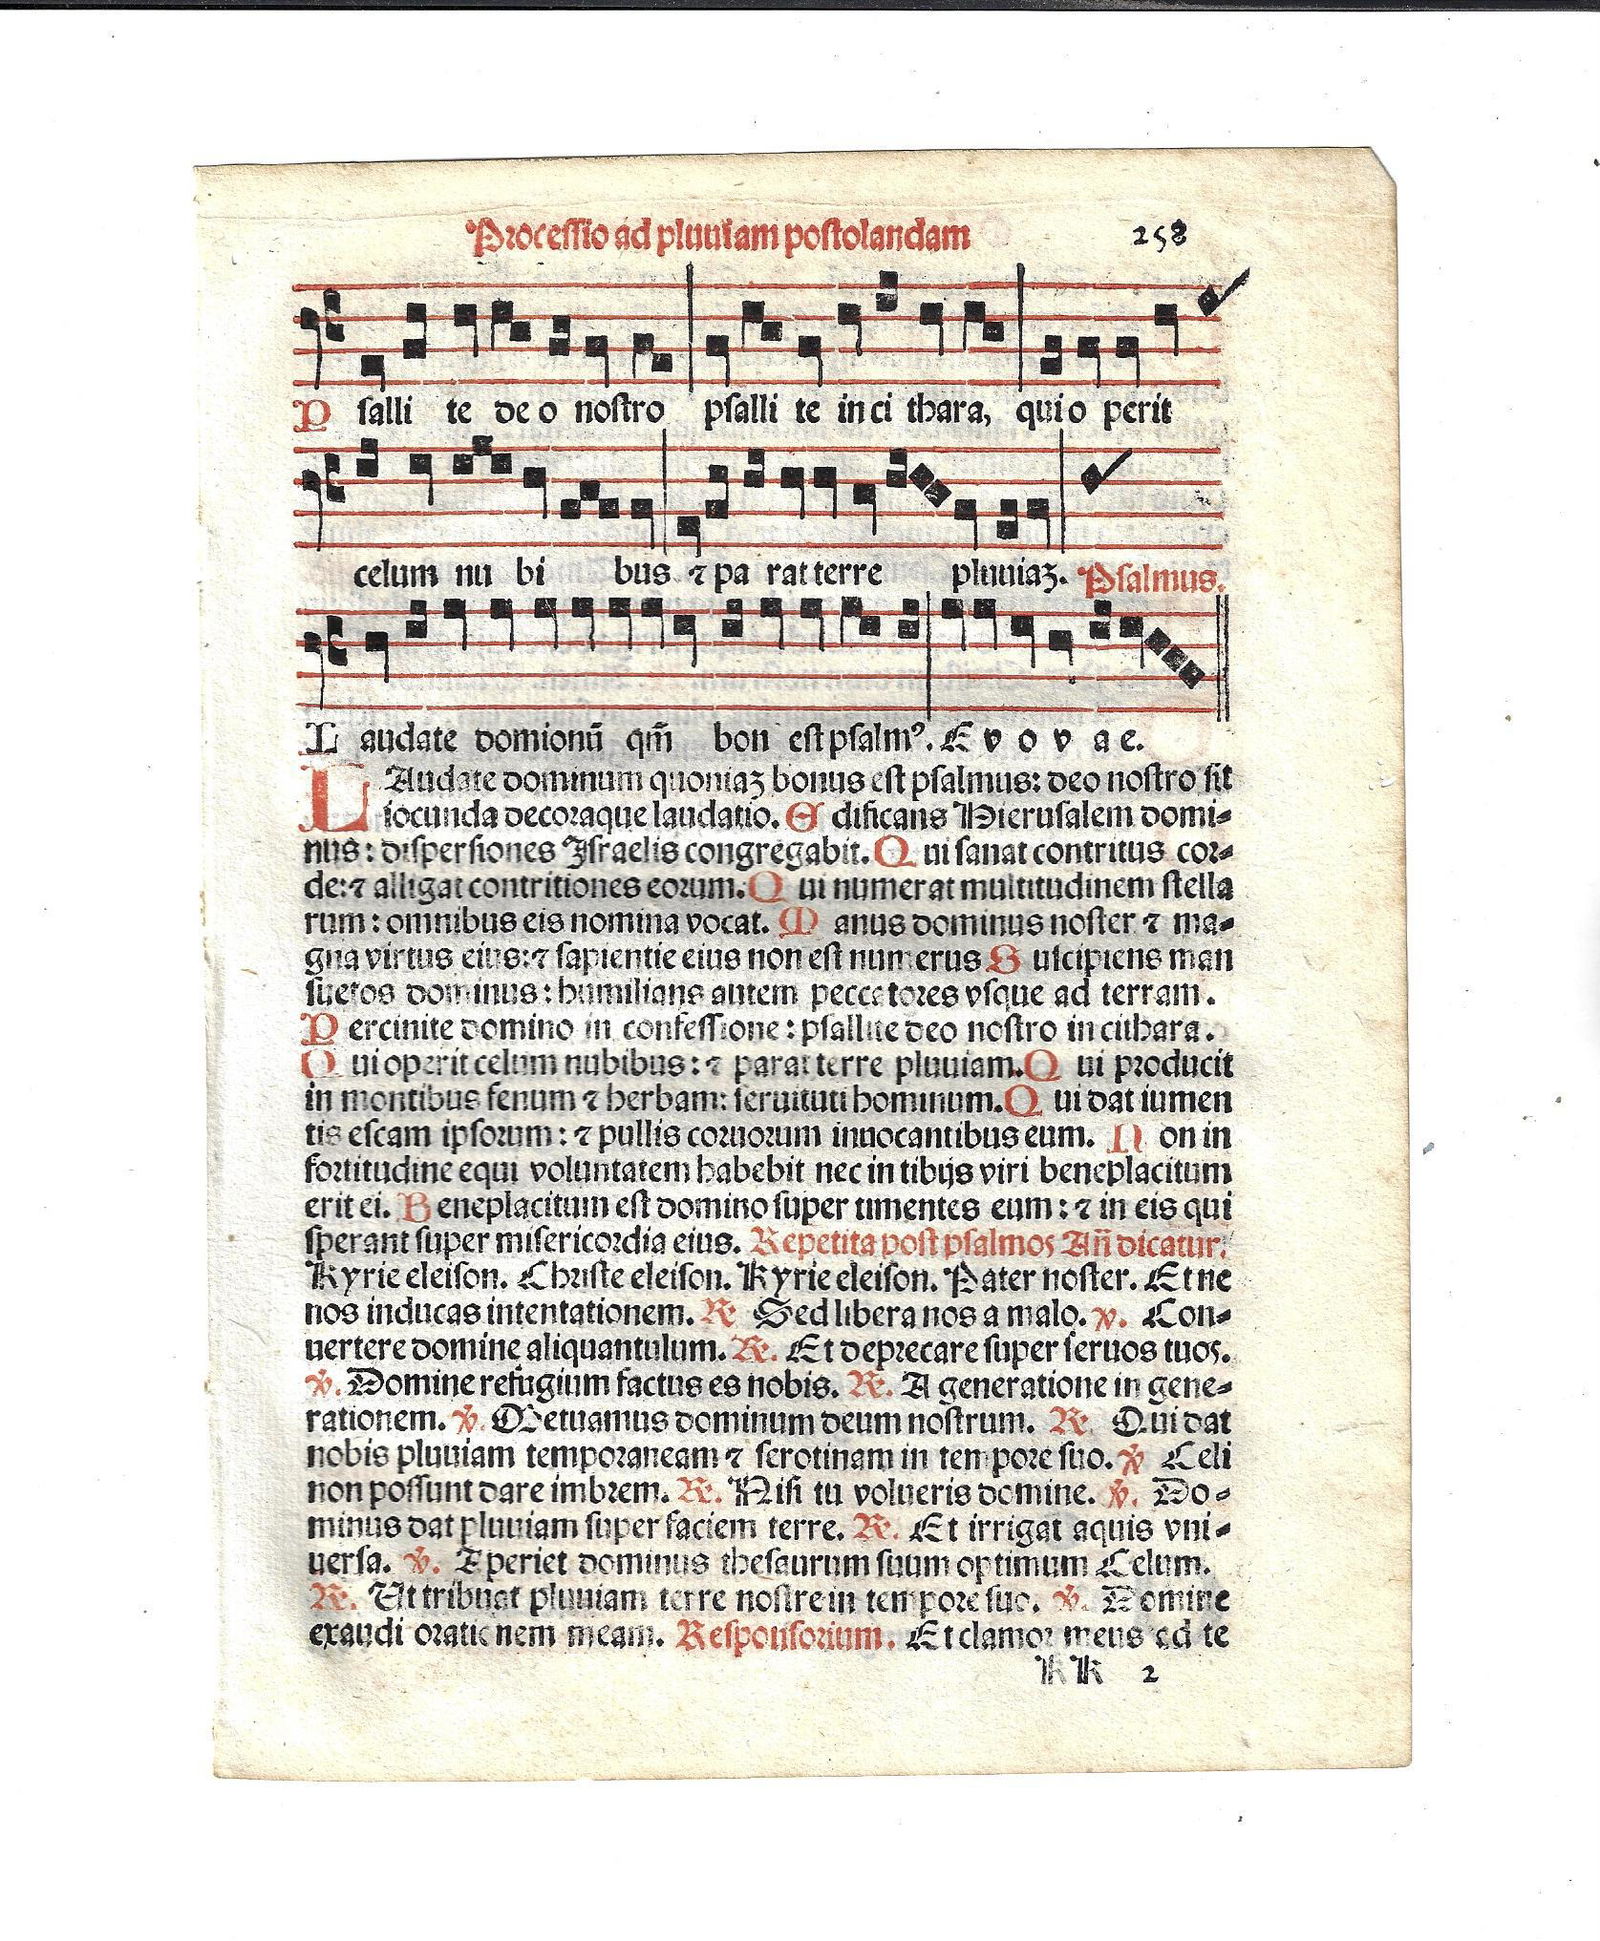 Processio ad pluuiam postolandam 258
P salli te deo nostro psalli te in ci thara, qui o perit
celum nu bi bus ⁊ pa rat terre pluuiaꝫ. Psalmus.
L audate domionū qm̄ bon est psalmꝰ. E v o v a e.
LAudate dominum quoniaꝫ bonus est psalmus: deo nostro sit
iocunda decoraque laudatio. E dificans Hierusalem domi-
nus: dispersiones Israelis congregabit. Q ui sanat contritus cor-
de: ⁊ alligat contritiones eorum. Q ui numerat multitudinem stella
rum: omnibus eis nomina vocat. M anus dominus noster ⁊ ma-
gna virtus eius: ⁊ sapientie eius non est numerus S uscipiens man
suetos dominus: humilians autem peccatores vsque ad terram.
P ercinite domino in confessione: psallite deo nostro in cithara.
Q ui operit celum nubibus: ⁊ parat terre pluuiam. Q ui producit
in montibus fenum ⁊ herbam: seruituti hominum. Q ui dat iumen
tis escam ipsorum: ⁊ pullis coruorum inuocantibus eum. N on in
fortitudine equi voluntatem habebit nec in tibijs viri beneplacitum
erit ei. B eneplacitum est domino super timentes eum: ⁊ in eis qui
sperant super misericordia eius. Repetita post psalmos Añ dicatur.
Kyrie eleison. Christe eleison. Kyrie eleison. Pater noster. Et ne
nos inducas intentationem. ℟ Sed libera nos a malo. ℣. Con-
uertere domine aliquantulum. ℟. Et deprecare super seruos tuos.
℣. Domine refugium factus es nobis. ℟. A generatione in gene-
rationem. ℣. Metuamus dominum deum nostrum. ℟ Qui dat
nobis pluuiam temporaneam ⁊ serotinam in tempore suo. ℣ Celi
non possunt dare imbrem. ℟. Nisi tu volueris domine. ℣. Do-
minus dat pluuiam super faciem terre. ℟. Et irrigat aquis vni-
uersa. ℣. Aperiet dominus thesaurum suum optimum Celum.
℟. Ut tribuat pluuiam terre nostre in tempore suo. ℣. Domine
exaudi orationem meam. Responsorium. Et clamor meus ad te
KK 2